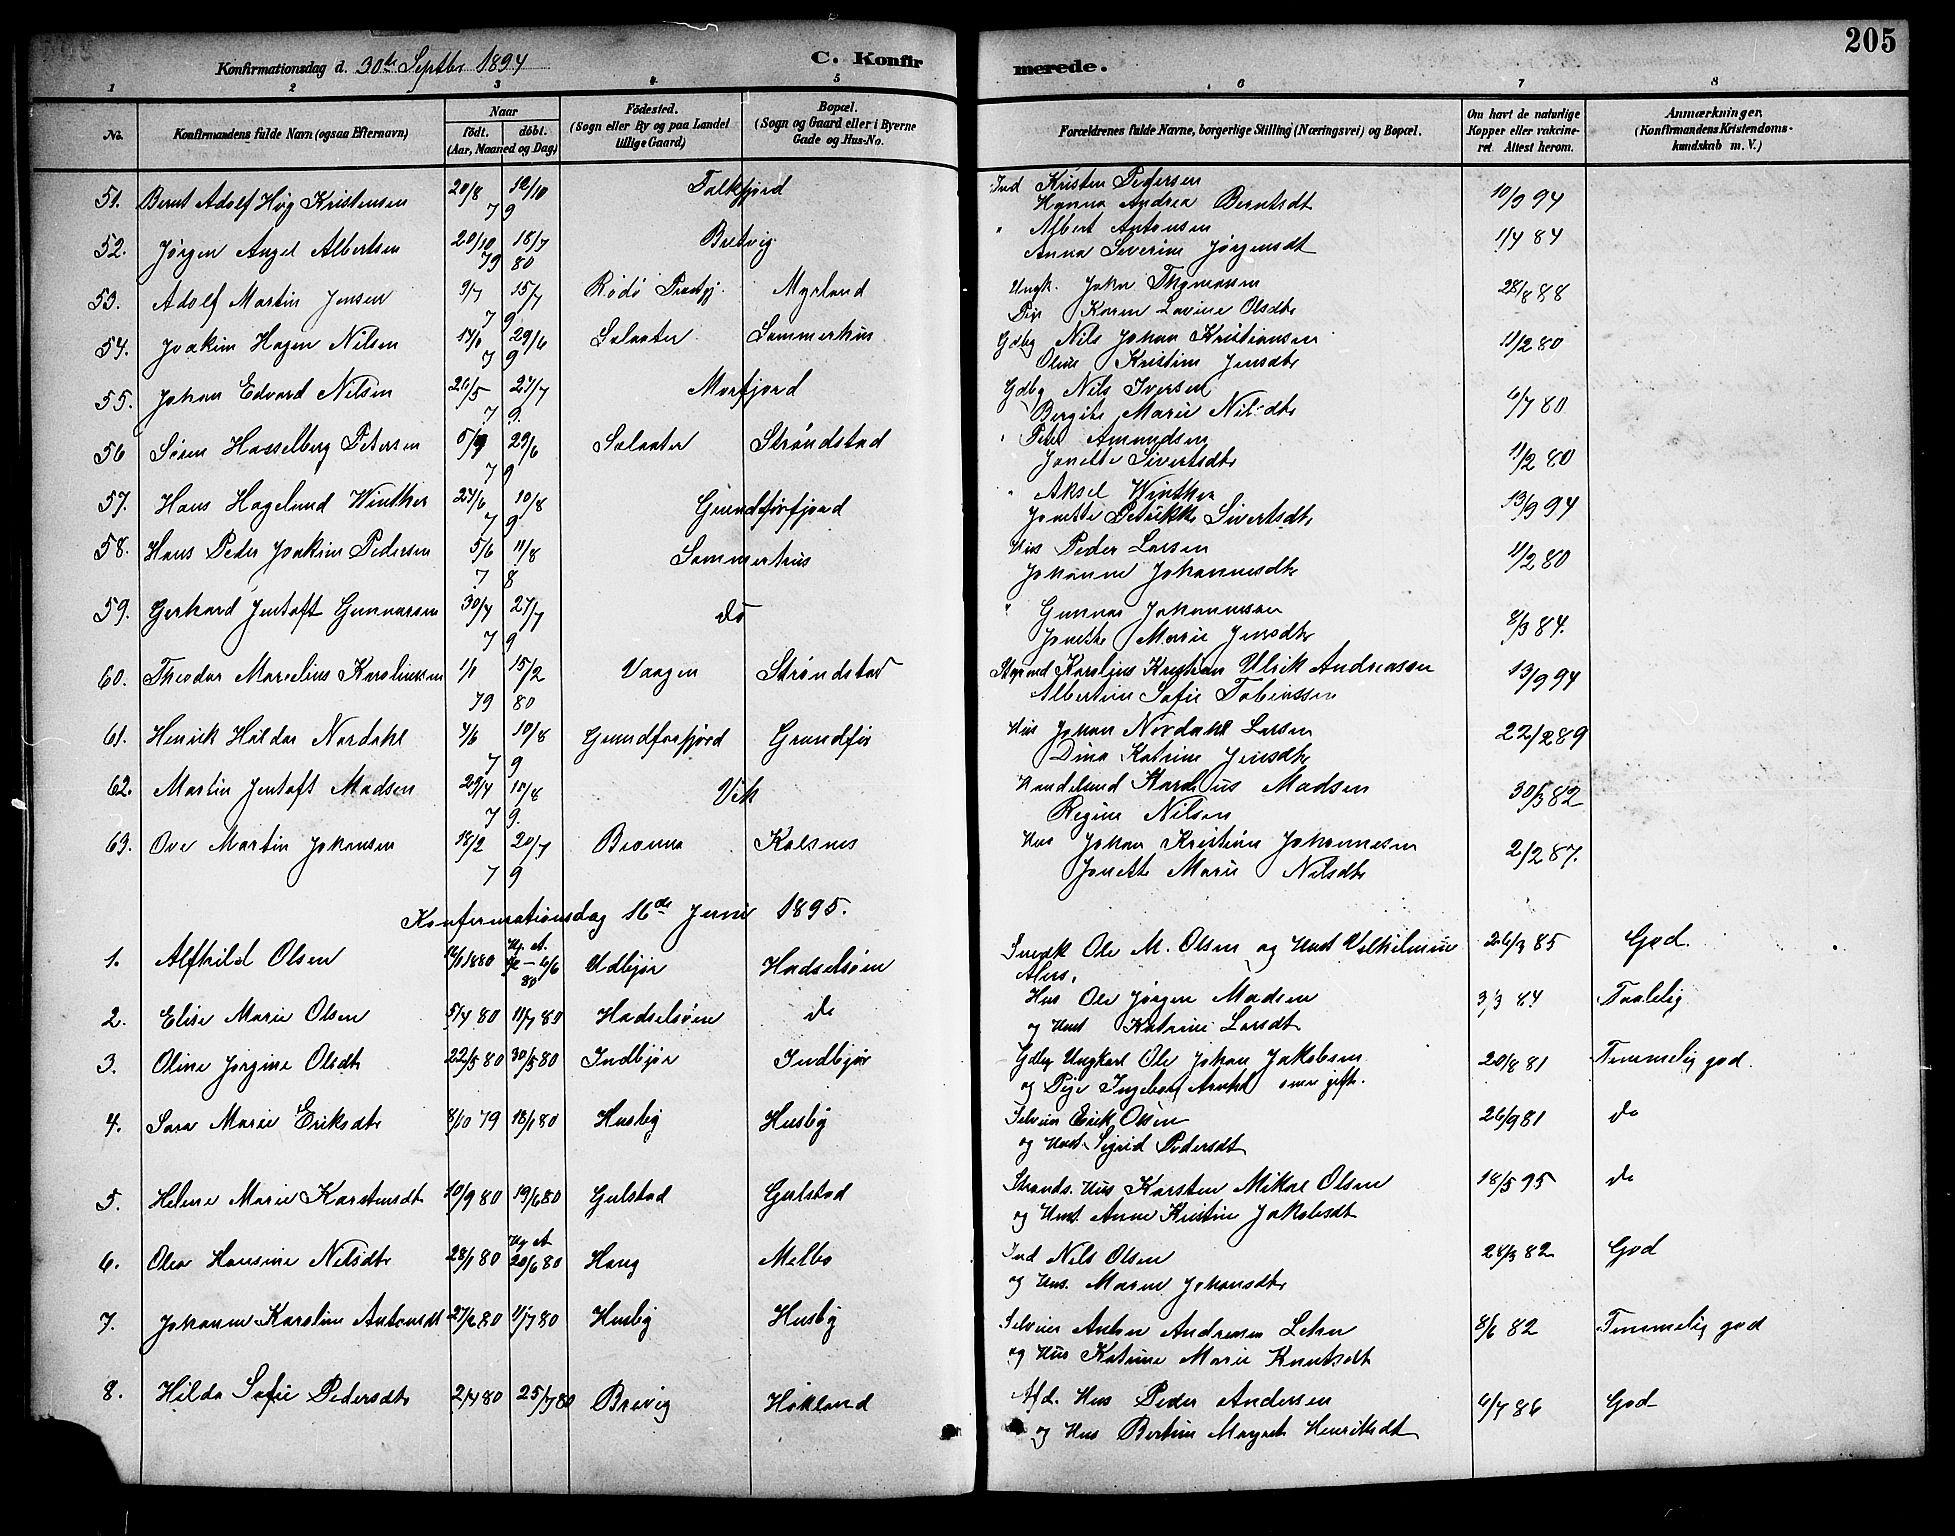 205
Konfirmationsdag d. 30te Septbr 1894 C. Konfir merede.
1 2 3 4 5 6 7 8
No. Konfirmandens fulde Navn (ogsaa Efternavn) Naar födt. döbt. (Aar, Maaned og Dag) Födested. (Sogn eller By og paa Landet tillige Gaard) Bopæl. (Sogn og Gaard eller i Byerne Gade og Hus-No. Forældrenes fulde Navne, borgerlige Stilling (Næringsvei) og Bopæl. Om havt de naturlige Kopper eller vakcineret. Attest herom. Anmærkninger. (Konfirmandens Kristendomskundskab m. V.)
51. Bernt Adolf Høg Kristensen 20/8 12/10 79 Falkfjord Ind Kristen Pedersen 10/9 94
Hanna Andrea Berntsdt
52. Jørgen Angel Albertsen 20/10 79 18/7 80 Bretvig " Albert Antonsen 1/4 84
Anna Severine Jørgensdt
53. Adolf Martin Jensen 9/7 15/7 79 Rödö Prestgj. Myrland Ungk. Johan Thomassen 28/8 88
Pige Karen Lovine Olsdtr
54. Joakim Hagen Nilsen 29/6 79 Solaater Sommerhus Gdbg Nils Johan Kristiansen 11/2 80
Oline Kristine Jensdtr
55. Johan Edvard Nilsen 20/5 27/7 79. Morfjord Gdbg Nils Iversen 6/7 80
Bergite Marie Nilsdtr
56 Sören Hasselberg Petersen 29/6 79 Solaater Ströndstad " Peter Amundsen 11/2 80
Jonette Sivertsdtr
57. Hans Hagelund Winther 27/6 10/8 79 Grundførfjord " Aksel Winther 13/9 94
Jonette Petrikke Sivertsdtr
58. Hans Peder Joakim Pedersen 5/6 11/8 78 Sommerhus Hus Peder Larsen 11/2 80
Johanne Johannesdtr
59. Gerhard Jentoft Gunnarsen 30/4 27/7 79 do " Gunnar Johannessen 8/3 84.
Jonette Marie Jensdtr
60. Theodor Marselius Karoliussen 1/1 79 15/2 80 Vaagen Ströndstad Karolius Kristian Ulrik Andreassen 13/9 94
Albertine Sofie Tobiassen
61. Henrik Hildor Nordahl 4/6 10/8 79 Grundforfjord Grundför Hus Johan Nordahl Larsen 22/2 89
Dina Katrine Jensdtr
62. Martin Jentoft Madsen 29/4 10/8 79. Vik Handelsmd Kardelius Madsen 30/3 82
Regine Nilsen
63. Ove Martin Johansen 18/2 20/7 79 Brønnø Kalsnes Hus Johan Kristian Johannesen 2/2 87.
Jonette Marie Nilsdtr
Konfirmationsdag 16de Juni 1895.
1. Alfhild Olsen 1880 6/6 80 Udbjør Hadselsöen Ole M. Olsen og Hust Vilhelmine 26/3 85 God.
Alers,
2. Elise Marie Olsen 5/4 80 11/7 80 Hadselsöen do Hus Ole Jørgen Madsen 3/3 84 Taalelig
og Hust Katrine Larsdt
3. Oline Jørgine Olsdt 22/5 80 30/5 80 Indbjør Indbjør Gdbg Ungkarl Ole Johan Jakobsen 20/8 81 Temmelig god.
og Pige Ingeborg senere gift.
4. Sara Marie Eriksdtr 8/10 79 18/1 80 Husby Husby Selveier Erik Olsen 26/9 81 do
og Hust. Sigrid Pedersdt
5. Helene Marie Karstensdt 10/9 80 19/6 80 Gulstad Gulstad Strands. Hus Karsten Mikal Olsen 18/5 95 do
og Hust. Anne Kristine Jakobsdt
6. Olea Hansine Nilsdtr 28/1 80 20/6 80 Haug Melbo Ind Nils Olsen 28/3 82 God
og Hus. Maren Johansdtr
7. Johanne Karoline Antonsdt 27/6 80 11/7 80 Husby Husby Selveier Anton Andreasen 8/6 82 Temmelig god
og Hus Katrine Marie Knutsdt
8. Hilda Sofie Pedersdtr 2/4 80 25/7 80 Brevig Hokland Afd. Hus Peder Andersen 6/7 86 God
og Hus Bertine Margret Henriksdt